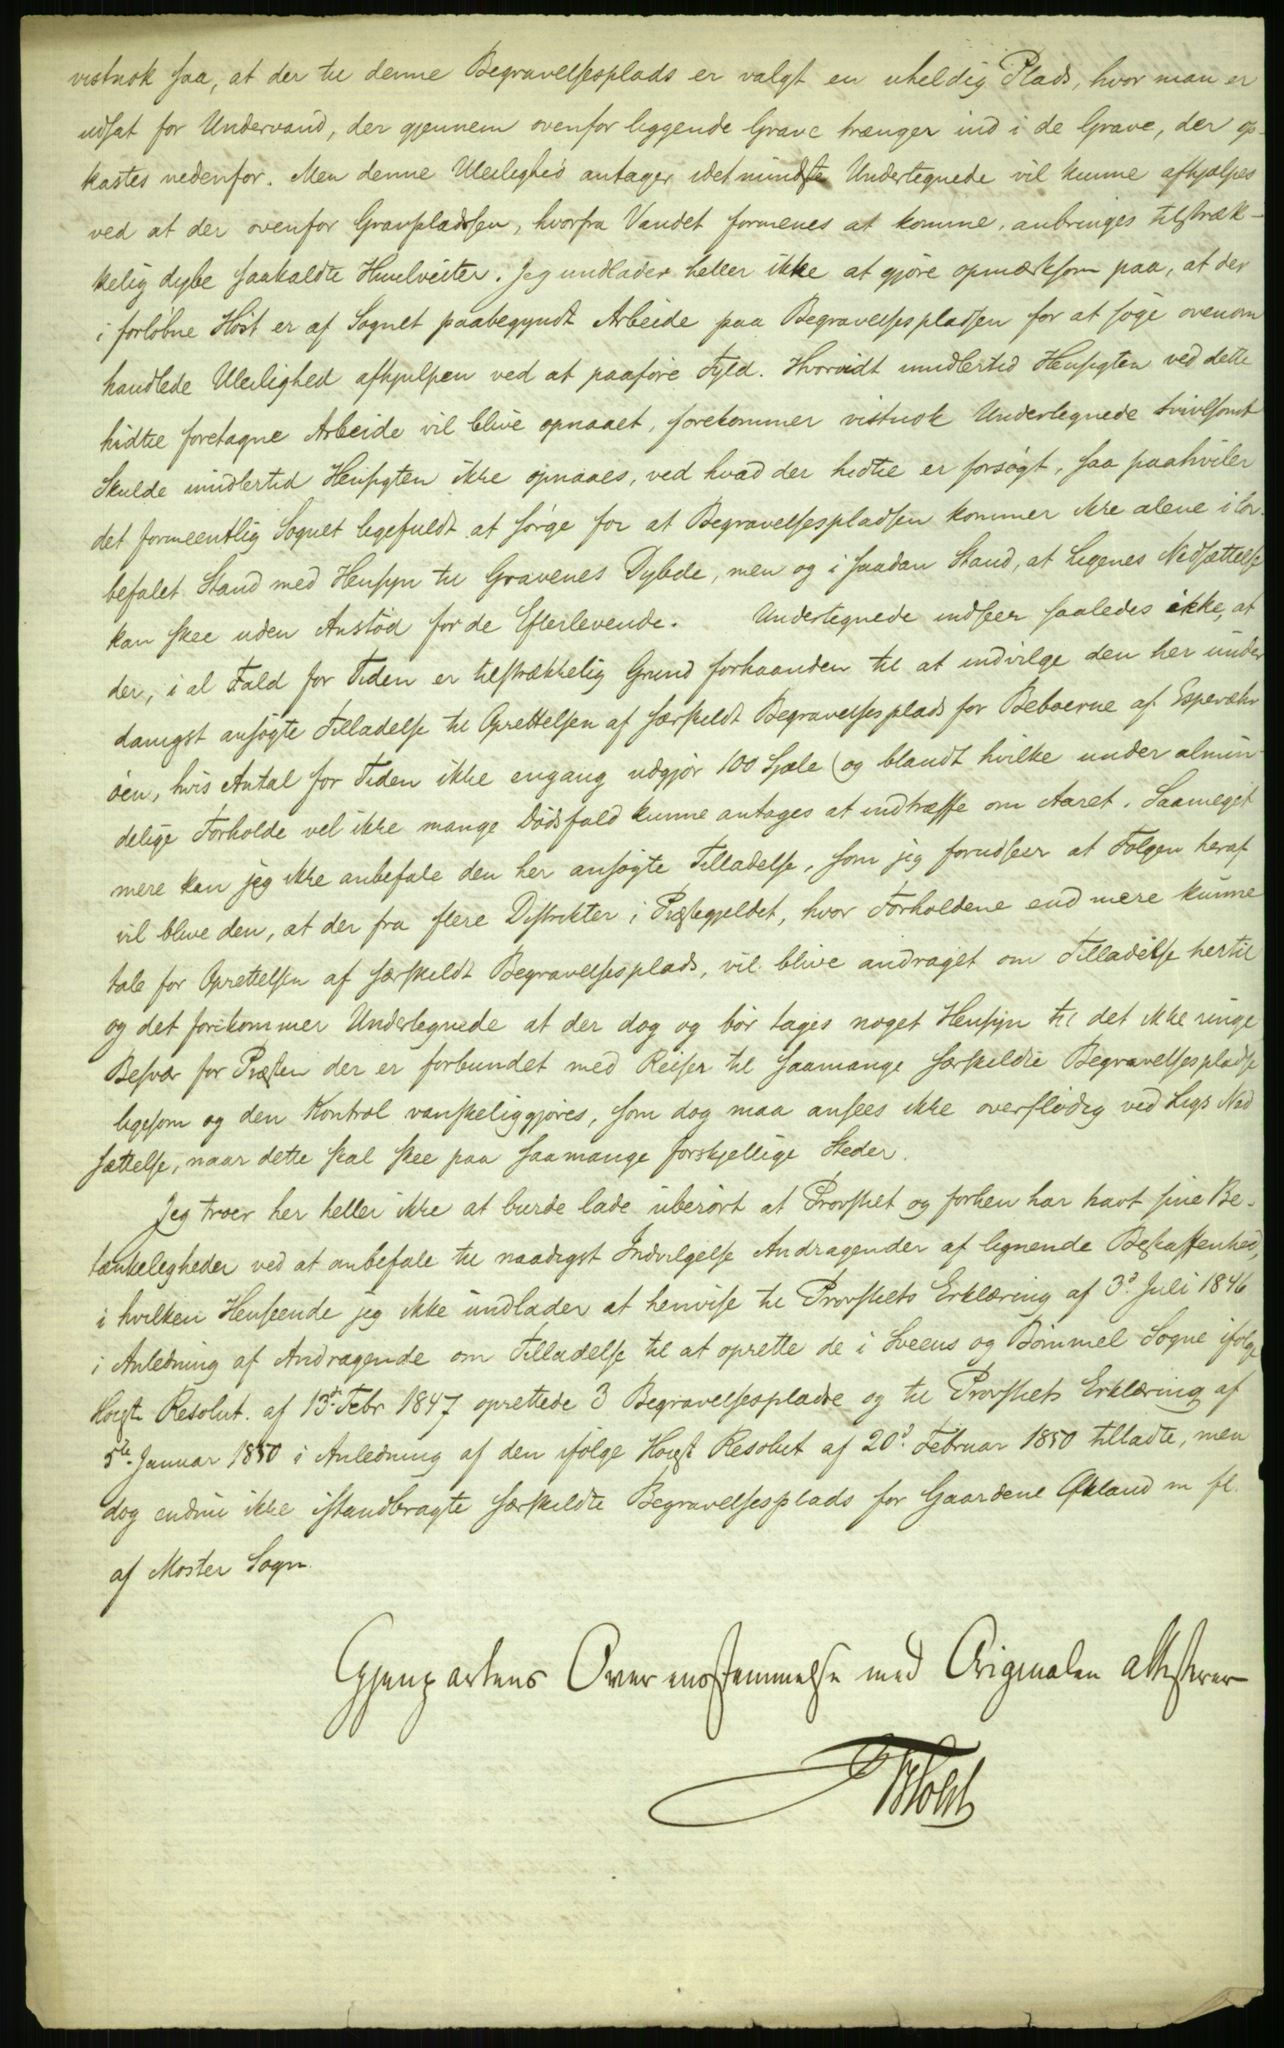 vistnok saa, at der til denne Begravelsesplads er valgt en uheldig Plads, hvor man er
udsat for Undervand, der gjennem ovenfor liggende Grave trænger ind i de Grave, der op-
kastes nedenfor. Men denne Uleilighed antager idetmindste Undertegnede vil kunne afhjælpes
ved at der ovenfor Gravpladsen, hvorfra Vandet formenes at komme, anbringes tilstræk-
kelig dybe saakaldte Huulveiter. Jeg undlader heller ikke at gjøre opmærksom paa, at der
i forløbne Høst er af Sognet paabegyndt Arbeide paa Begravelsespladsen for at søge ovenom
handlede Uleilighed afhjulpen ved at paaføre Fyld. Hvorvidt imidlertid Hensigten ved dette
hidtil foretagne Arbeide vil blive opnaaet, forekommer vistnok Undertegnede tvivlsomt
Skulde imidlertid Hensigten ikke opnaaes, ved hvad der hidtil er forsøgt, saa paahviler
det formeentlig Sognet ligefuldt at sørge for at Begravelsespladsen kommer ikke alene i lov-
befalet Stand med Hensyn til Gravenes Dybde, men og i saadan Stand, at Ligenes Nedsættelse
kan skee uden Anstød for de Efterlevende. Undertegnede indseer saaledes ikke, at
der, i al Fald for Tiden er tilstrækkelig Grund forhaanden til at indvilge den her under
danigst ansøgte Tilladelse til Oprettelsen af særskildt Begravelsesplads for Beboerne af Espevær
øen, hvis Antal for Tiden ikke engang udgjør 100 Sjæle (og blandt hvilke under almin-
delige Forholde vel ikke mange Dødsfald kunne antages at indtræffe om Aaret. Saameget
mere kan jeg ikke anbefale den her ansøgte Tilladelse, som jeg forudseer at Følgen heraf
vil blive den, at der fra flere Distrikter i Præstegjeldet, hvor Forholdene end mere kunne
tale for Oprettelsen af særskildt Begravelsesplads, vil blive andraget om Tilladelse hertil
og det forekommer Undertegnede at der dog og bør tages noget Hensyn til det ikke ringe
Besvær for Præsten der er forbundet med Reiser til saamange særskildte Begravelsespladse
ligesom og den Kontrol vanskeliggjøres, som dog maa ansees ikke overflødig ved Ligs Ned
sættelse, naar dette skal skee paa saamange forskjellige Steder.
Jeg troer her heller ikke at burde lade uberørt at Provstiet og forhen har havt sine Be-
tænkeligheder ved at anbefale til naadigst Indvilgelse Andragender af lignende Beskaffenhed,
i hvilken Henseende jeg ikke undlader at henvise til Provstiets Erklæring af 3d. Juli 1846
i Anledning af Andragende om Tilladelse til at oprette de i Sveens og Bømmel Sogne ifølge
Høigste Resolut. af 13d. Febr 1847 oprettede 3 Begravelsespladse og til Provstiets Erklæring af
5te. Januar 1850 i Anledning af den ifølge Høigst Resolut af 20d. Februar 1850 tilladte, men
dog endnu ikke istandbragte særskildte Begravelsesplads for Gaardene Økland m fl.
af Moster Sogn.
Gjenpartens Overensstemmelse med Originalen attesterer
Holst